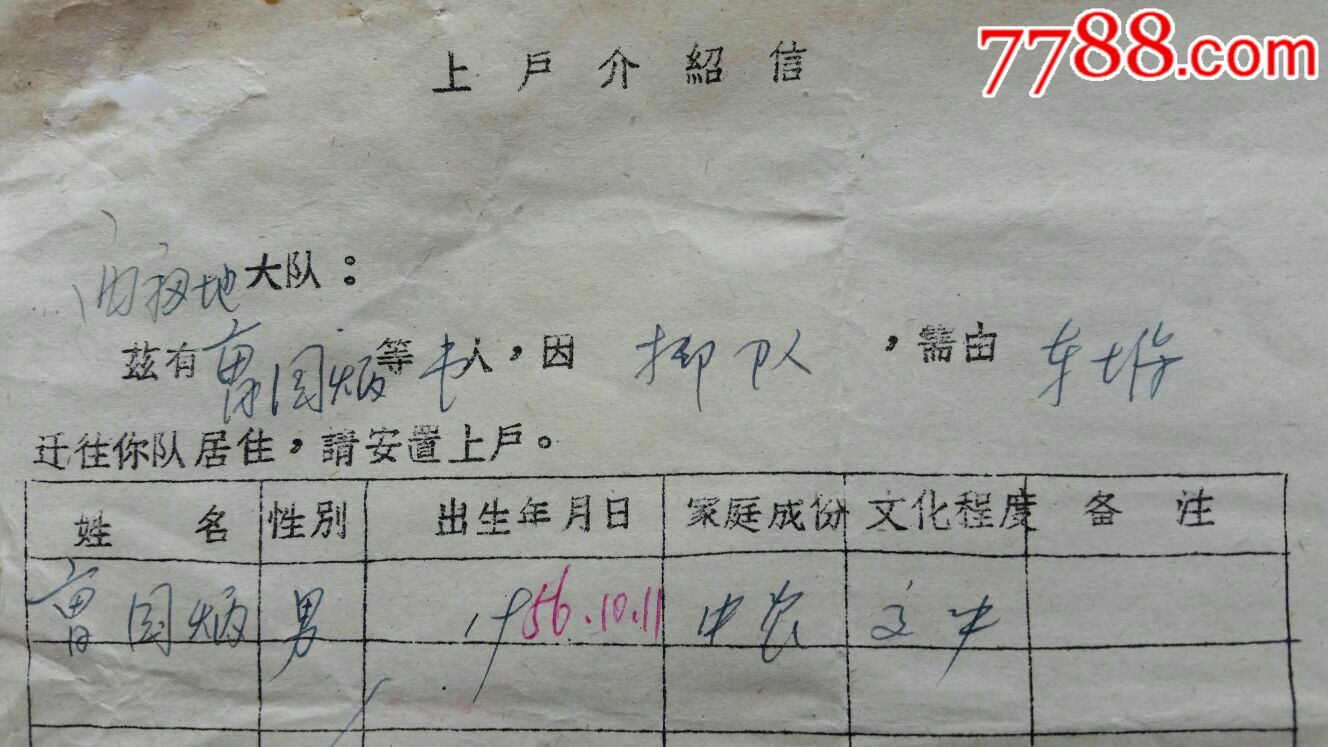 7788.com
上戶介紹信
大队：
茲有国炳等人，因插队，需由
迁往你队居住，請安置上戶。
姓名 性別 出生年月日 家庭成份 文化程度 备注
国炳 男 1956.10.11 中农